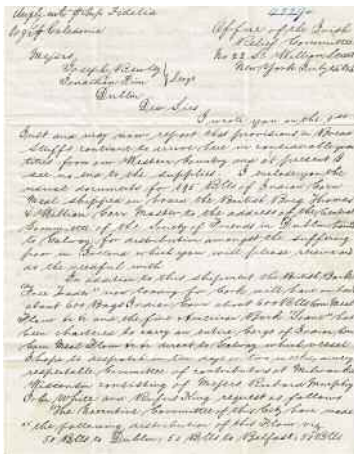 Dupl. ... Ship Fidelia
Orig. pr Caledonia
Office of the Irish
Relief Committee
No 22 So. William Street
New York July
Messrs
Joseph Bewly
Jonathan Pim
Dublin
Dear Sirs
I wrote you on the 1st
Inst and may now report that provisions & Bread
Stuffs continue to arrive here in considerable quan
tities from our Western Country and at present I
see no end to the supplies. I enclose you the
usual documents for 195 Bbls of Indian Corn
Meal shipped on board the British Brig Thomas
& William Master to the address of the Central
Committee of the Society of Friends in Dublin
to Galway for distribution amongst the suffering
poor in Ireland which you will please receive
as the needful with
In addition to this shipment the British Bark
"Free Trade" now loading for Cork will have on board
about 600 Bags Indian Corn about 600 Bbls Corn Meal
Flour &c &c and the fine American Bark has
been chartered to carry an entire cargo of Indian Corn
Corn Meal Flour &c &c direct to Galway which vessel
I hope to despatch in ten days or two weeks, a very
respectable Committee of contributors at Milwaukie
Wisconsin consisting of Messrs Richard Murphy
White and Rufus King request as follows
"The Executive Committee of this City have made
"the following distribution of this Flour viz
50 Bbls to Dublin, 50 Bbls to Belfast, 50 Bbls